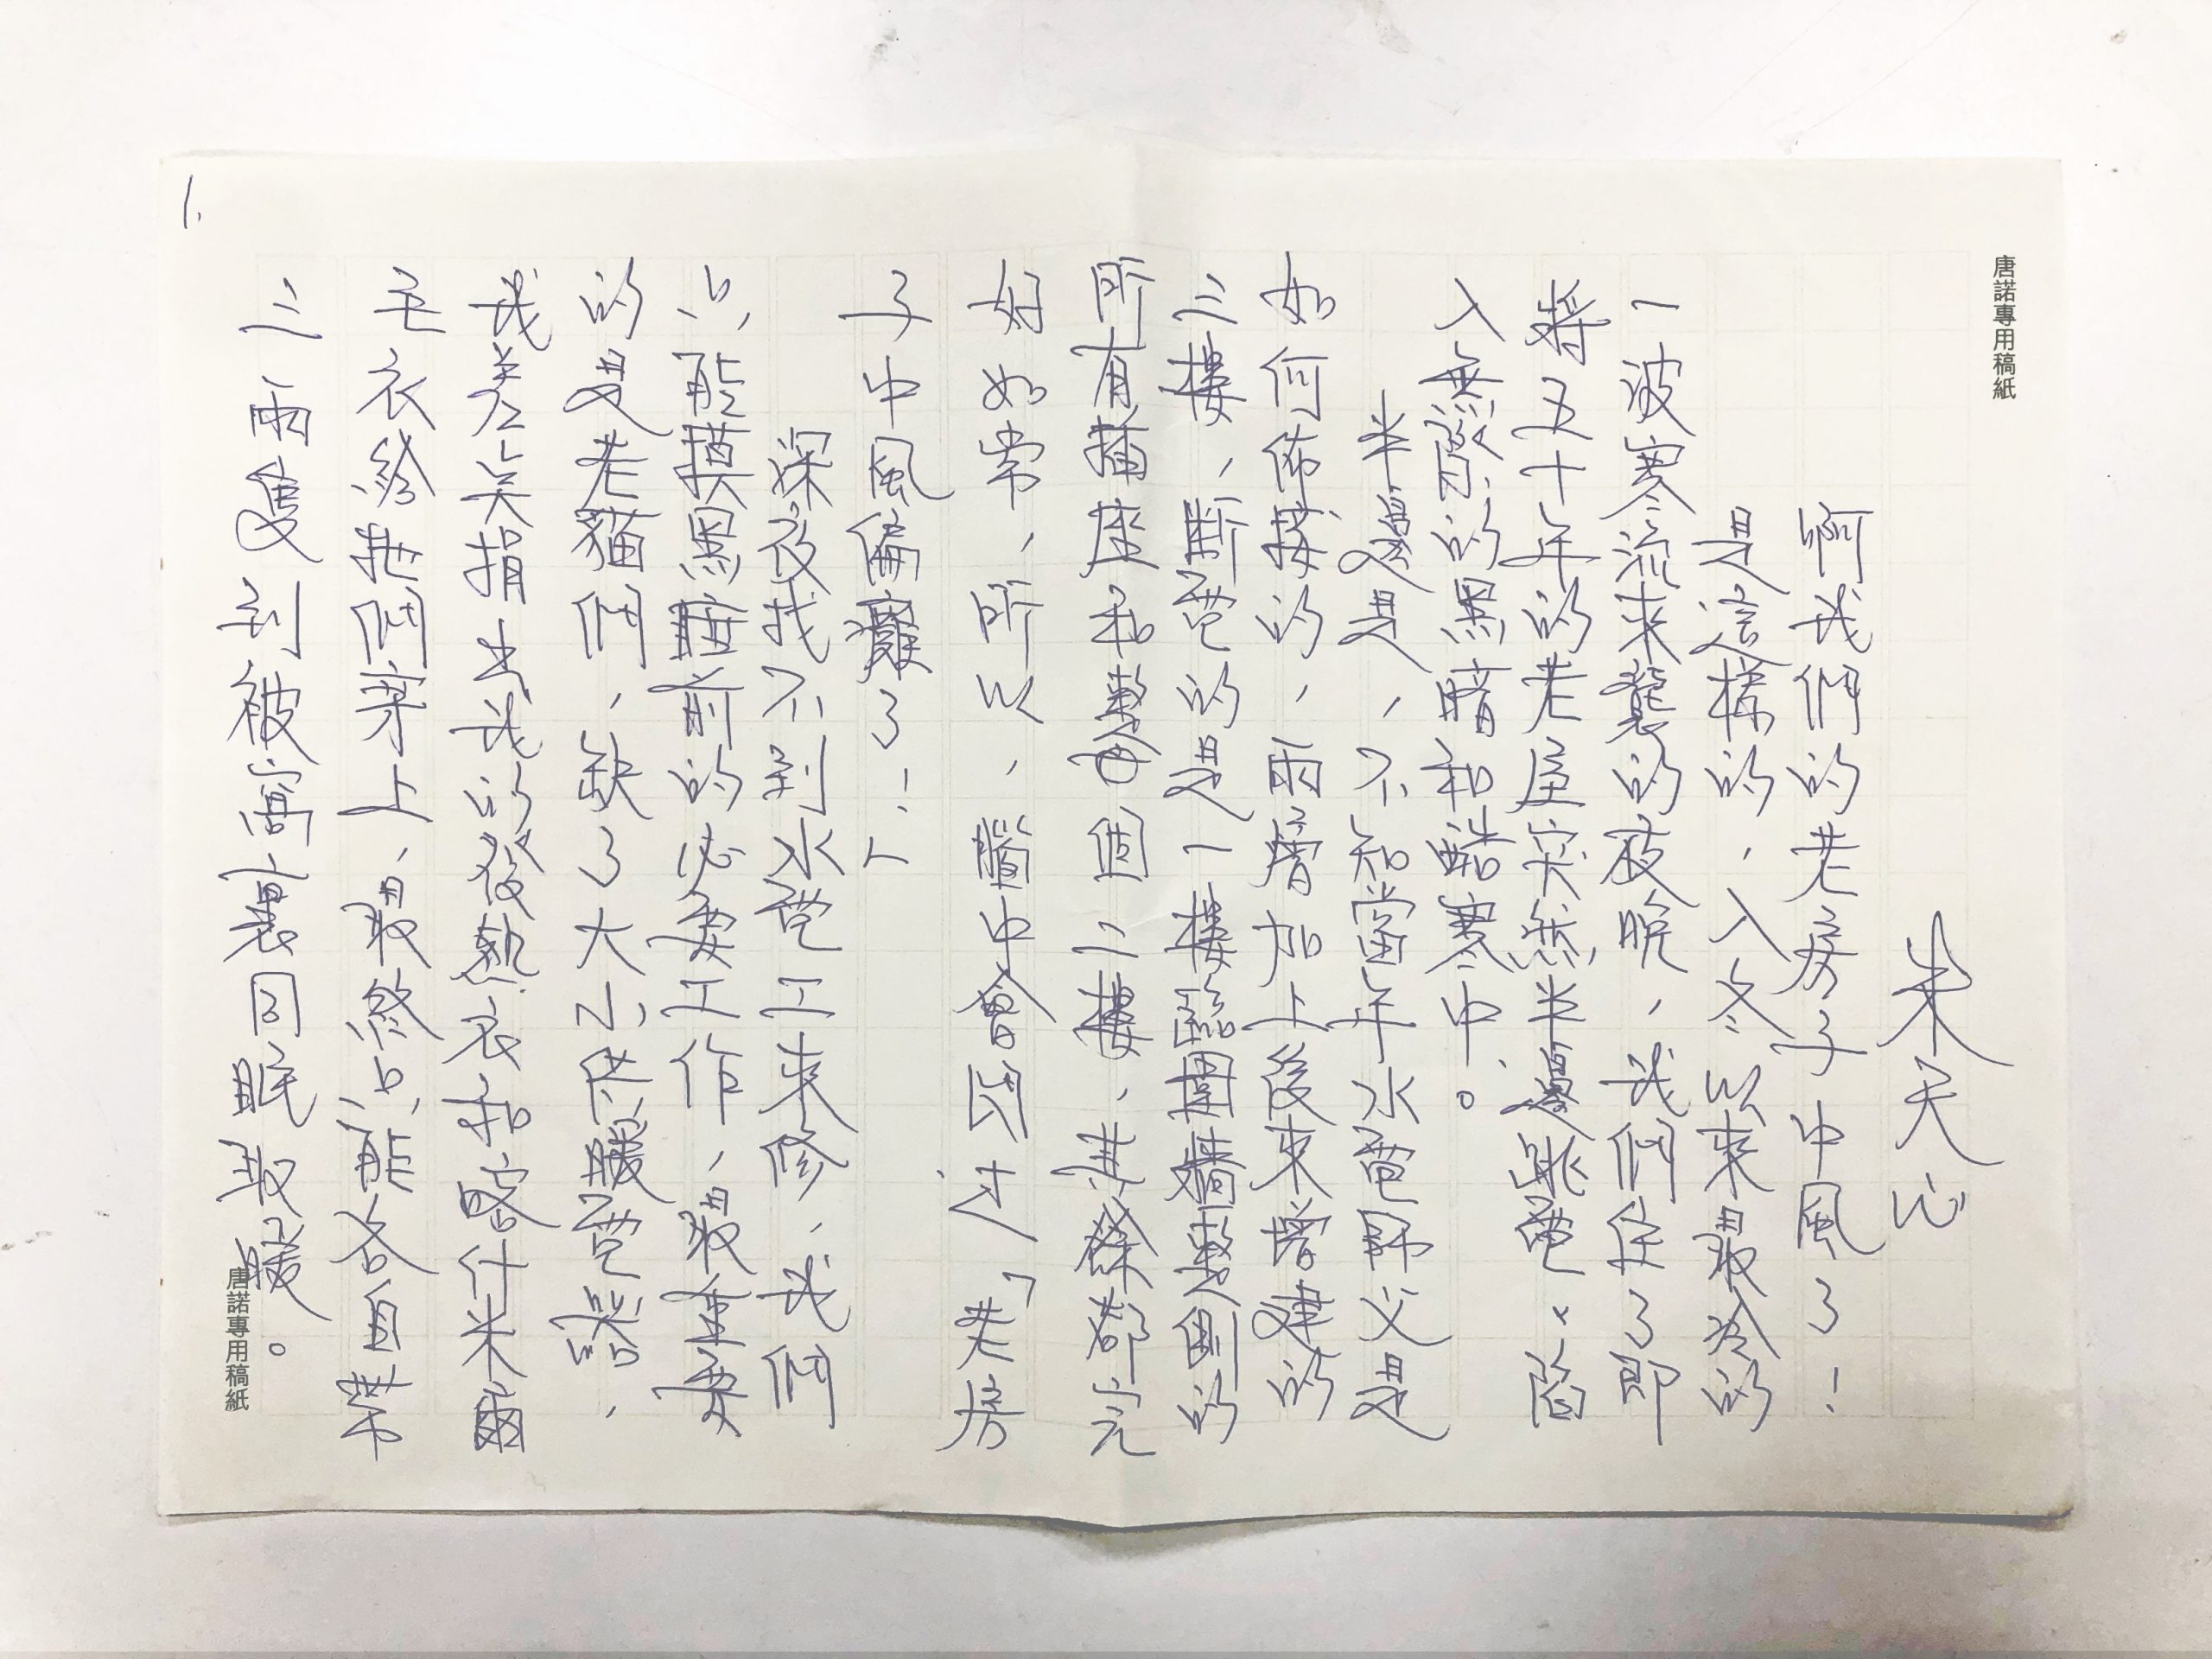 唐諾專用稿紙
朱天心
啊我們的老房子中風了！
是這樣的，入冬以來最冷的
一波寒流來襲的夜晚，我們住了即
將五十年的老屋突然半邊跳電，陷
入無預的黑暗和酷寒中。
半邊是，不知當年水電師父是
如何佈接的，兩層加上後來增建的
三樓，斷電的是一樓臨圍牆邊的
所有插座和整個二樓，其餘都完
好如常，所以，闇中會因之「老房
子中風偏癱了！」
深夜找不到水電工來修，我們
只能摸黑睡前的必要工作，最重要
的是老貓們，缺了大小床暖電毯，
我差矣捐出我的發熱衣和喀什米爾
毛衣給鋪墊上，最終只能各自帶
二兩隻到被窩裏同眠取暖。
1.
唐諾專用稿紙